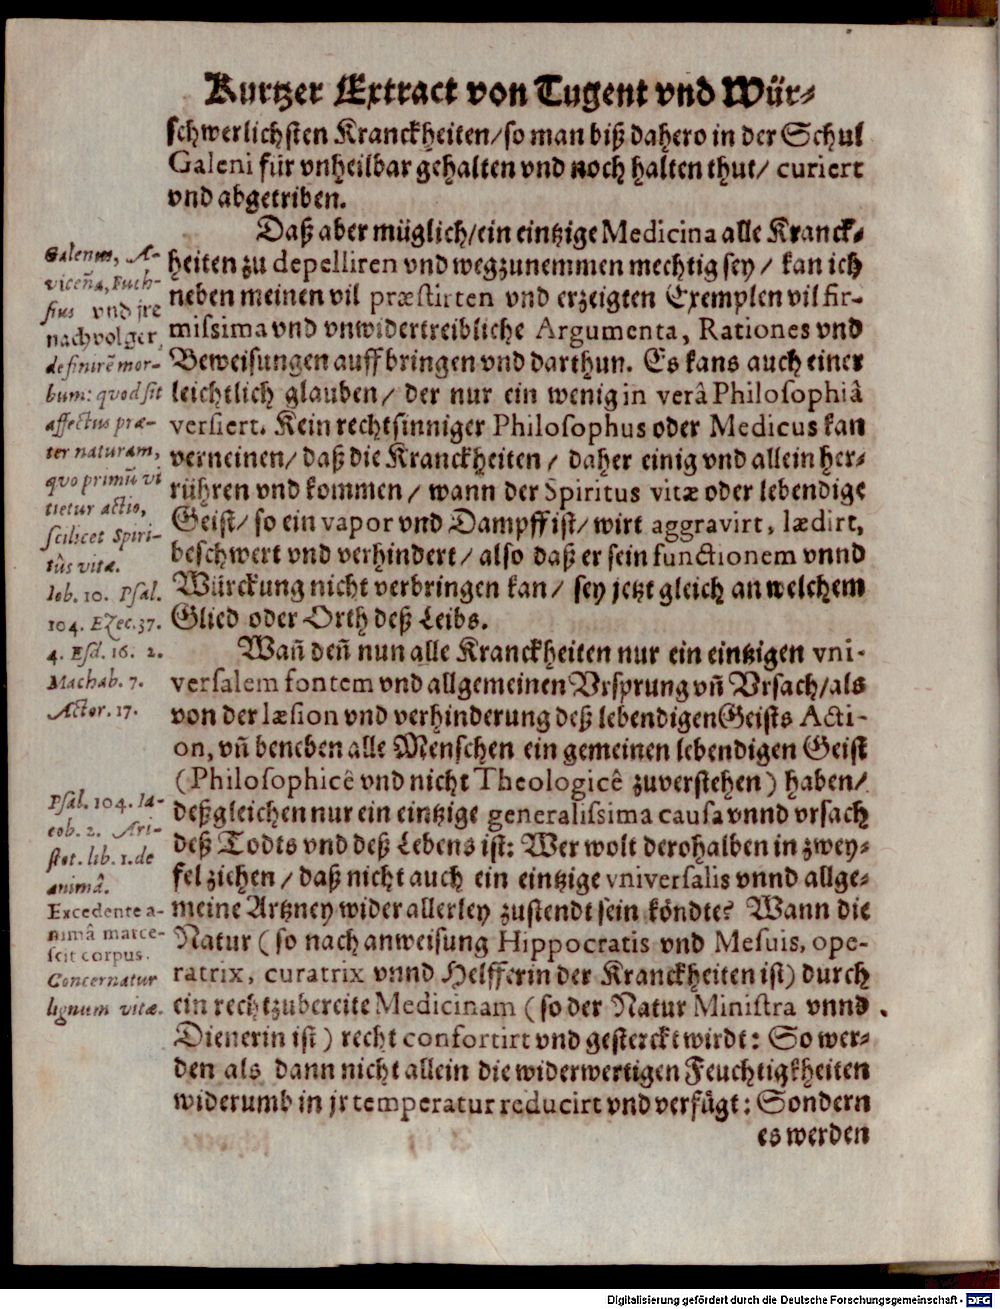 Kurtzer Extract von Tugent vnd Wür⸗
schwerlichsten Kranckheiten/so man biß dahero in der Schul
Galeni für vnheilbar gehalten vnd noch halten thut/ curiert
vnd abgetriben.
Daß aber müglich/ein eintzige Medicina alle Kranck⸗
heiten zu depelliren vnd wegzunemmen mechtig sey/ kan ich
neben meinen vil præstirten vnd erzeigten Exemplen vil fir-
missima vnd vnwidertreibliche Argumenta, Rationes vnd
Beweisungen auff bringen vnd darthun. Es kans auch einer
leichtlich glauben/ der nur ein wenig in verâ Philosophiâ
versiert. Kein rechtsinniger Philosophus oder Medicus kan
verneinen/ daß die Kranckheiten/ daher einig vnd allein her⸗
rühren vnd kommen/ wann der Spiritus vitæ oder lebendige
Geist/ so ein vapor vnd Dampff ist/ wirt aggravirt, lædirt,
beschwert vnd verhindert/ also daß er sein functionem vnnd
Würckung nicht verbringen kan/ sey jetzt gleich an welchem
Glied oder Orth deß Leibs.
Wañ deñ nun alle Kranckheiten nur ein eintzigen vni-
versalem fontem vnd allgemeinen Vrsprung vñ Vrsach/als
von der læsion vnd verhinderung deß lebendigen Geists Acti-
on, vñ beneben alle Menschen ein gemeinen lebendigen Geist
(Philosophicê vnd nicht Theologicê zuverstehen) haben/
deßgleichen nur ein eintzige generalissima causa vnnd vrsach
deß Todts vnd deß Lebens ist: Wer wolt derohalben in zwey⸗
fel ziehen/ daß nicht auch ein eintzige vniversalis vnnd allge⸗
meine Artzney wider allerley zustendt sein köndte? Wann die
Natur (so nach anweisung Hippocratis vnd Mesuis, ope-
ratrix, curatrix vnnd Helfferin der Kranckheiten ist) durch
ein recht zubereite Medicinam (so der Natur Ministra vnnd
Dienerin ist) recht confortirt vnd gesterckt wirdt: So wer⸗
den als dann nicht allein die widerwertigen Feuchtigkheiten
widerumb in jr temperatur reducirt vnd verfügt: Sondern
es werden
Galenus, A-
vicen̄a, Fuch-
sius vnd jre
nachvolger
definirē mor-
bum: quod sit
affectus præ-
ter naturam,
quo primū vi
tietur actio,
scilicet Spiri-
tûs vitæ.
Iob. 10. Psal.
104. Ezec. 37.
4. Esd. 16. 2.
Machab. 7.
Actor. 17.
Psal. 104. Ia-
cob. 2. Ari-
stot. lib. 1. de
animâ.
Excedente a-
nimâ marce-
scit corpus.
Concernatur
lignum vitæ.
Digitalisierung gefördert durch die Deutsche Forschungsgemeinschaft - DFG